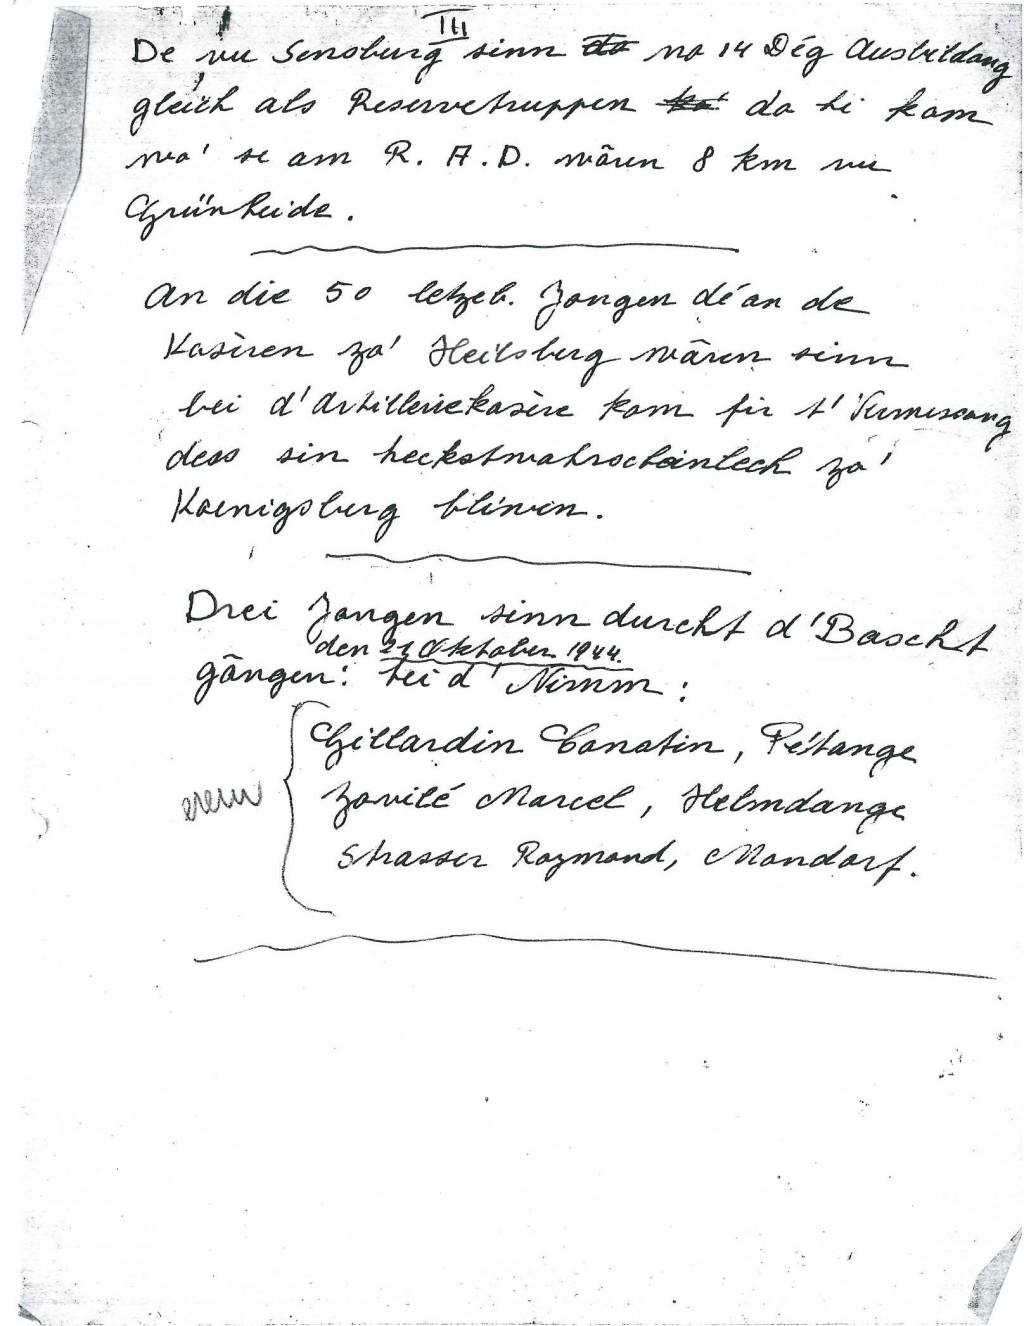 III
De vu Sensburg sinn da no 14 Dég Ausbildang
gleich als Reservetruppen ko' do hi kom
wo' se am R. A. D. wären 8 km vu
Grünheide.
An die 50 letzeb. Jongen dé an de
Kasèren zo' Heilsberg wären sinn
bei d'Artilleriekasère kom fir t'
dess sin heckstwahrscheinlech zo'
Koenigsberg bliwen.
Drei Jongen sinn durcht d'Bascht
den 21 Oktober 1944.
gängen: hei d'Nimm:
Gillardin Constin, Pétange
Zovilé Marcel, Helmdange
Strasser Raymond, Mondorf.